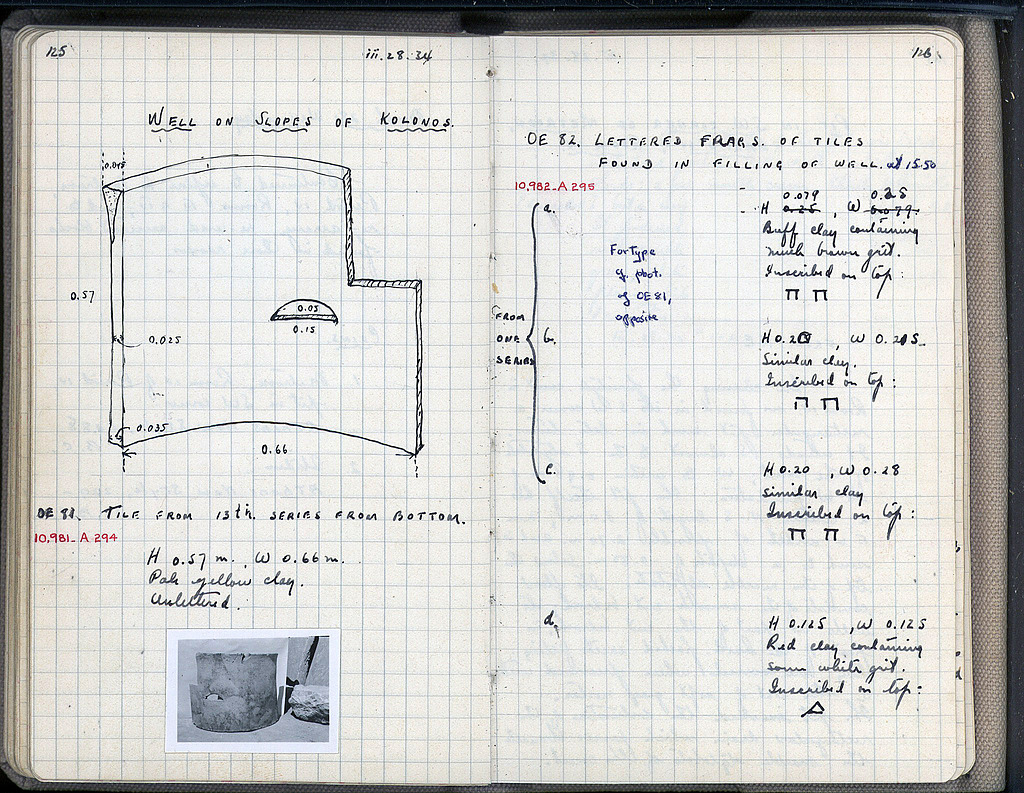 125
iii.28.34
WELL ON SLOPES OF KOLONOS.
0.045
0.57
0.05
0.15
0.025
0.035
0.66
OE 81. TILE FROM 13th. SERIES FROM BOTTOM.
10,981-A 294
H 0.57 m., W 0.66 m.
Pale yellow clay.
Unlettered.
126
OE 82. LETTERED FRAGS. OF TILES
FOUND IN FILLING OF WELL. at 15.50
10,982-A 295
FROM
ONE
SERIES
For Type
cf. phot.
of OE 81,
opposite
a.
0.079 0.25
H 0.25, W 0.079.
Buff clay containing
much brown grit.
Inscribed on top:
Π Π
b.
H 0.20, W 0.215.
Similar clay.
Inscribed on top:
Π Π
c.
H 0.20, W 0.28
Similar clay
Inscribed on top:
Π Π
d.
H 0.125, W 0.125
Red clay containing
some white grit.
Inscribed on top:
Δ